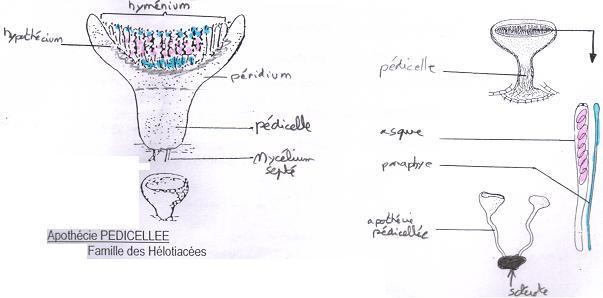 hyménium
hypothécium
péridium
pédicelle
Mycélium
septé
Apothécie PEDICELLEE
Famille des Hélotiacées
pédicelle
asque
paraphye
apothécie
pédicellée
sclérote